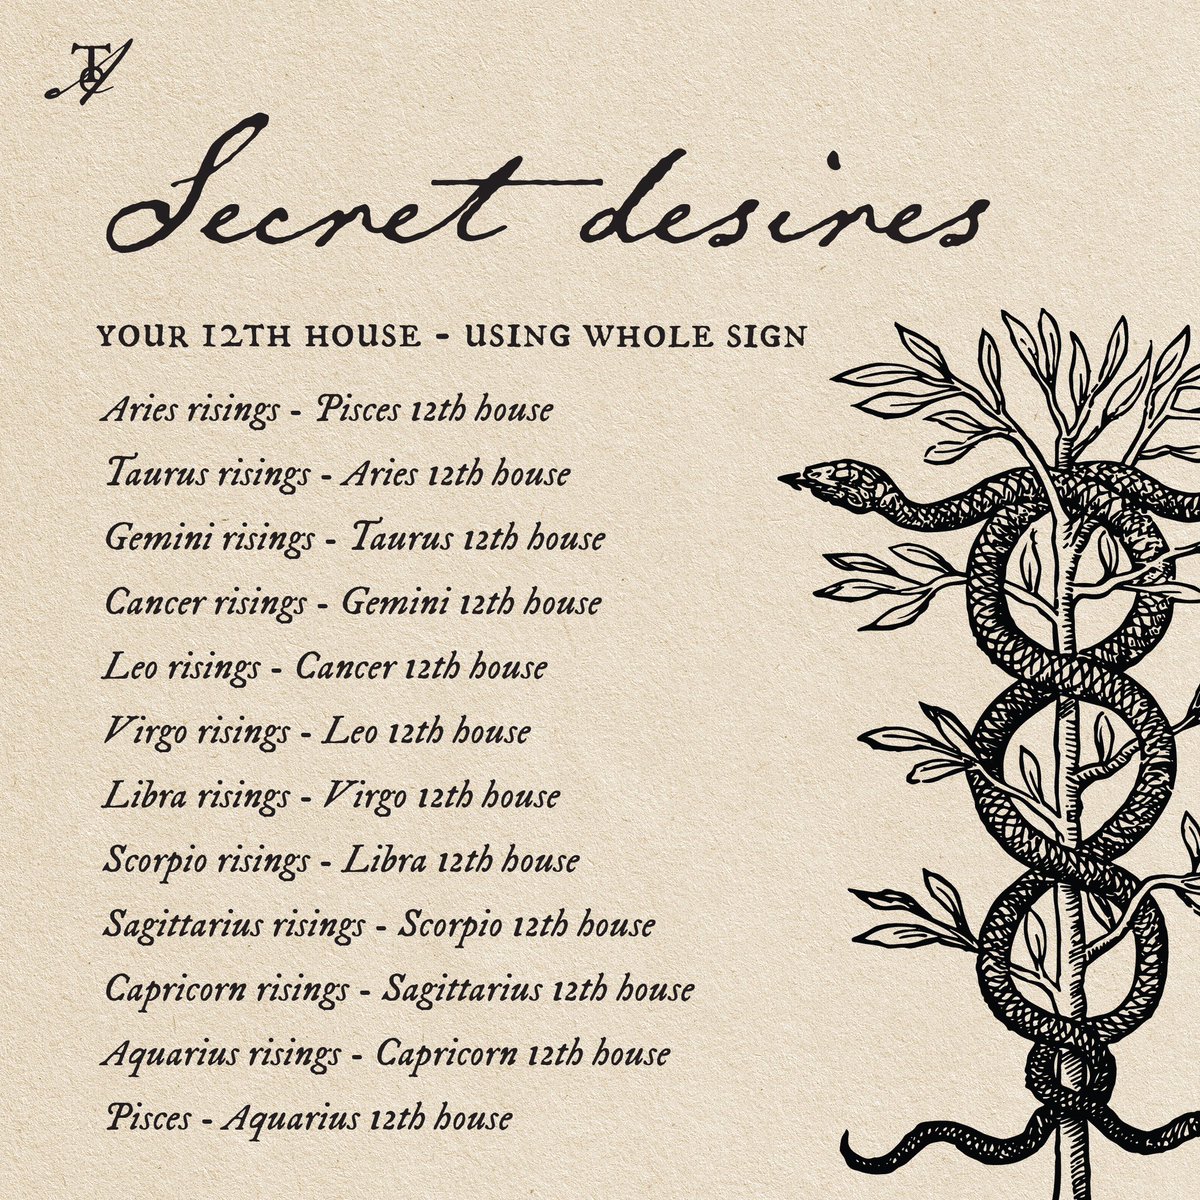 TCA
Secret desires
YOUR 12TH HOUSE - USING WHOLE SIGN
Aries risings - Pisces 12th house
Taurus risings - Aries 12th house
Gemini risings - Taurus 12th house
Cancer risings - Gemini 12th house
Leo risings - Cancer 12th house
Virgo risings - Leo 12th house
Libra risings - Virgo 12th house
Scorpio risings - Libra 12th house
Sagittarius risings - Scorpio 12th house
Capricorn risings - Sagittarius 12th house
Aquarius risings - Capricorn 12th house
Pisces - Aquarius 12th house